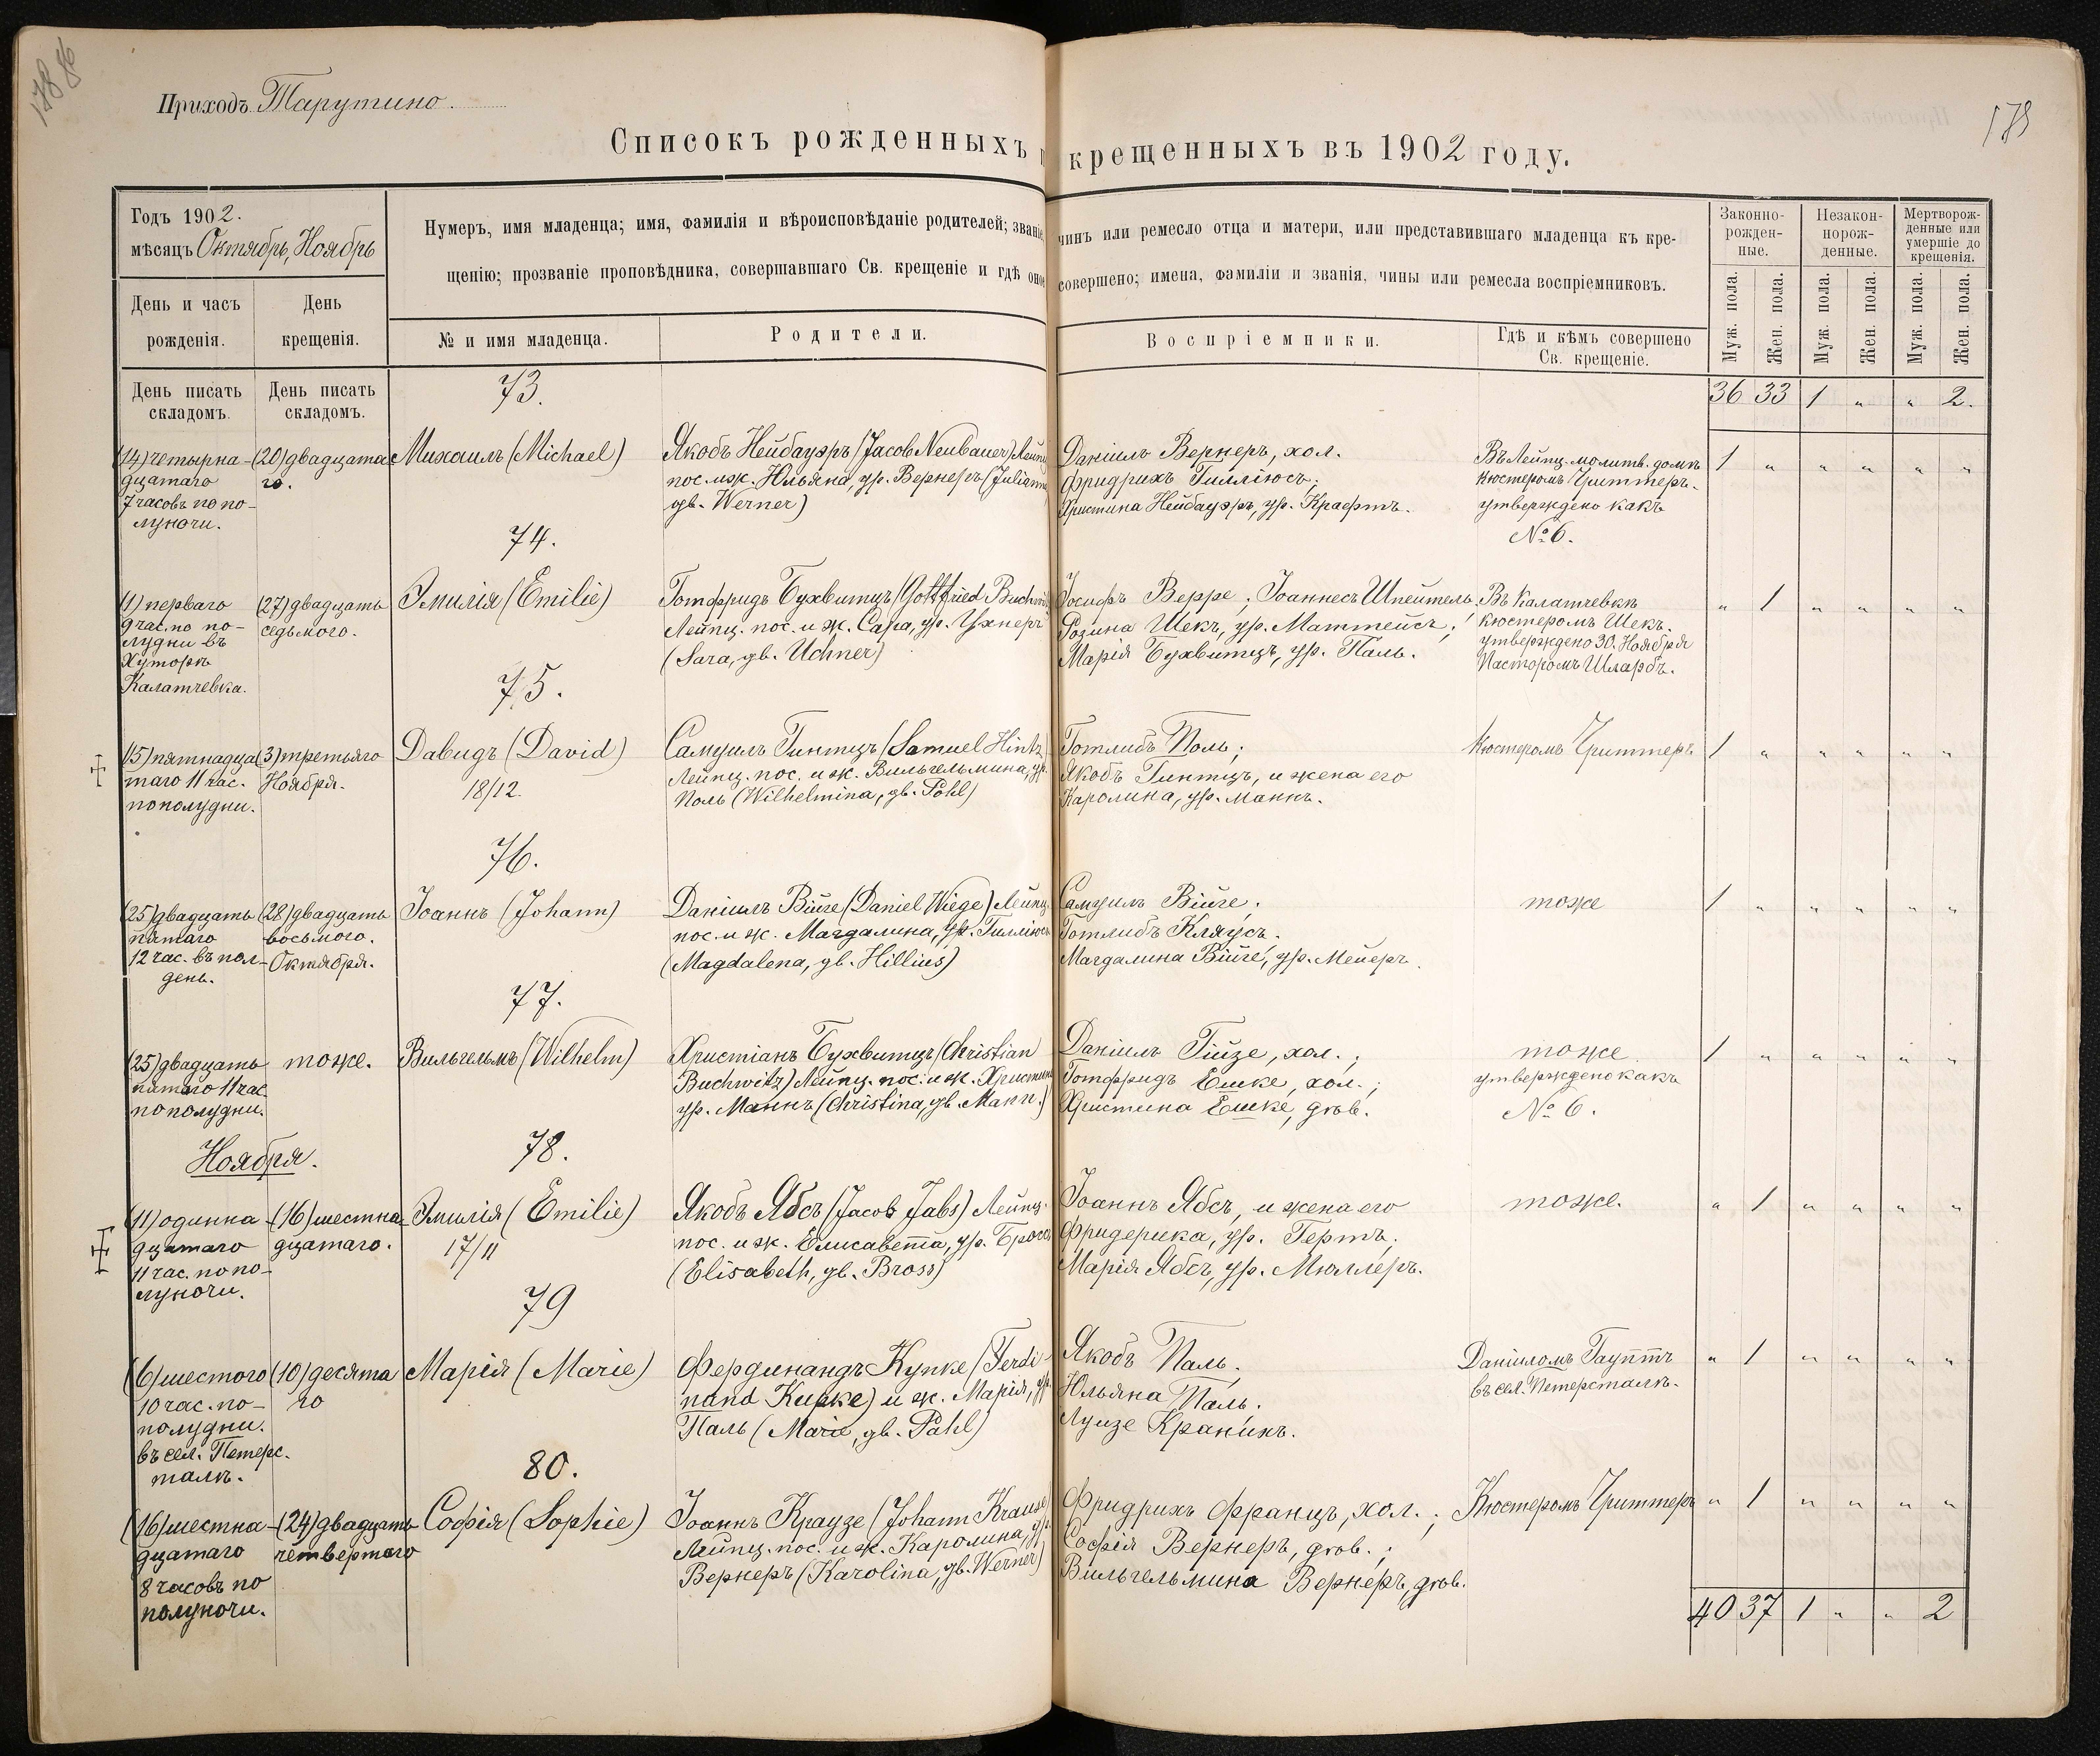 178 86
179
Приходъ Тарутино.
Списокъ рожденныхъ и крещенныхъ въ 1902 году.
Годъ 1902.
мѣсяцъ Октябрь, Ноябрь
Нумеръ, имя младенца; имя, фамилія и вѣроисповѣданіе родителей; званіе, чинъ или ремесло отца и матери, или представившаго младенца къ кре-
щенію; прозваніе проповѣдника, совершавшаго Св. крещеніе и гдѣ оное совершено; имена, фамиліи и званія, чины или ремесла воспріемниковъ.
Законно-
рожден-
ные.
Незакон-
норож-
денные.
Мертворож-
денные или
умершіе до
крещенія.
День и часъ
рожденія.
День
крещенія.
№ и имя младенца.
Родители.
Воспріемники.
Гдѣ и кѣмъ совершено
Св. крещеніе.
Муж. пола.
Жен. пола.
Муж. пола.
Жен. пола.
Муж. пола.
Жен. пола.
День писать
складомъ.
День писать
складомъ.
36 33 1 „ „ 2.
73.
(14) четырна-
дцатаго
7 часовъ по по-
луночи.
(20) двадцата
го.
Михаилъ (Michael)
Якобъ Нейбауэръ (Jacob Neubauer) Лейпц.
пос. и ж. Юльяна, ур. Вернеръ (Julianna
gb. Werner)
Даніилъ Вернеръ, хол.
Фридрихъ Гилліюсъ;
Христина Нейбауэръ, ур. Крафтъ.
Въ Лейпц. молитв. домѣ
Кюстеромъ Чриттеръ.
утверждено какъ
№ 6.
1 „ „ „ „ „
74.
(1) перваго
9 час. по по-
лудни въ
Хуторѣ
Калатчевка.
(27) двадцать
седьмого.
Эмилія (Emilie)
Готфридъ Бухвитцъ (Gottfried Buchwitz)
Лейпц. пос. и ж. Сара, ур. Ухнеръ
(Sara, gb. Uchner)
Іосифъ Верре; Іоаннесъ Шпейтель
Розина Шекъ, ур. Маттейсъ;
Марія Бухвитцъ, ур. Паль.
Въ Калатчевкѣ
Кюстеромъ Шекъ.
утверждено 30. Ноября
Пасторомъ Шларбъ.
„ 1 „ „ „ „
75.
(15) пятнадца
таго 11 час.
по полудни.
(3) третьяго
Ноября.
Давидъ (David)
18/12.
Самуилъ Гинтцъ (Samuel Hintz
Лейпц. пос. и ж. Вильгельмина, ур.
Поль (Wilhelmina, gb. Pohl)
Готлибъ Поль;
Якобъ Гинтцъ, и жена его
Каролина, ур. Маннъ.
Кюстеромъ Чриттеръ
1 „ „ „ „ „
76.
(25) двадцать
пятаго
12 час. въ пол-
день.
(28) двадцать
восьмого.
Октября.
Іоаннъ (Johann)
Даніилъ Війге (Daniel Wiege) Лейпц.
пос. и ж. Магдалина, ур. Гилліюсъ
(Magdalena, gb. Hillius)
Самуилъ Війге;
Готлибъ Кляусъ.
Магдалина Війге, ур. Мейеръ.
тоже
1 „ „ „ „ „
77.
(25) двадцать
пятаго 11 час
по полудни.
тоже.
Вильгельмъ (Wilhelm)
Христіанъ Бухвитцъ (Christian
Buchwitz) Лейпц. пос. и ж. Христина
ур. Маннъ (Christina, gb. Mann.)
Даніилъ Гійзе, хол.;
Готфридъ Ешке, хол.;
Христина Ешке, дѣв.
тоже
утверждено какъ
№ 6.
1 „ „ „ „ „
Ноября.
78.
(11) одинна-
дцатаго
11 час. по по-
луночи.
(16) шестна-
дцатаго.
Эмилія (Emilie)
17/11
Якобъ Ябсъ (Jacob Jabs) Лейпц.
пос. и ж. Елисавета, ур. Броссъ
(Elisabeth, gb. Bross)
Іоаннъ Ябсъ, и жена его
Фридерика, ур. Гертъ;
Марія Ябсъ, ур. Мюллеръ.
тоже.
„ 1 „ „ „ „
79
(6) шестого
10 час. по-
полудни.
въ сел. Петерс-
талѣ.
(10) десята
го
Марія (Marie)
Фердинандъ Купке (Ferdi-
nand Kupke) и ж. Марія, ур.
Паль (Marie, gb. Pahl)
Якобъ Паль.
Юльяна Паль.
Луизе Краникъ.
Даніиломъ Гауптъ
въ сел. Петерсталѣ.
„ 1 „ „ „ „
80.
(16) шестна-
дцатаго
8 часовъ по
полуночи.
(24) двадцать
четвертаго
Софія (Sophie)
Іоаннъ Краузе (Johann Krause)
Лейпц. пос. и ж. Каролина, ур.
Вернеръ (Karolina, gb. Werner)
Фридрихъ Францъ, хол.;
Софія Вернеръ, дѣв.;
Вильгельмина Вернеръ, дѣв.
Кюстеромъ Чриттеръ
„ 1 „ „ „ „
40 37 1 „ „ 2